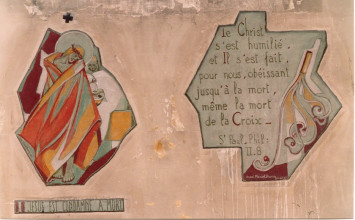 le Christ
s'est humilié.
et Il s'est fait,
pour nous, obéissant
jusqu'à la mort,
même la mort
de la Croix _
St Paul. Phil:
II.8
I JESUS EST CONDAMNE A MORT